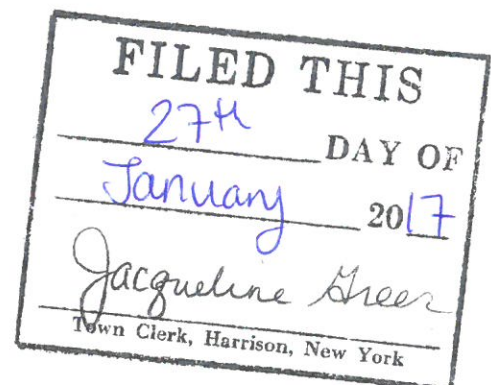 FILED THIS
27th DAY OF
January 2017
Jacqueline Greer
Town Clerk, Harrison, New York